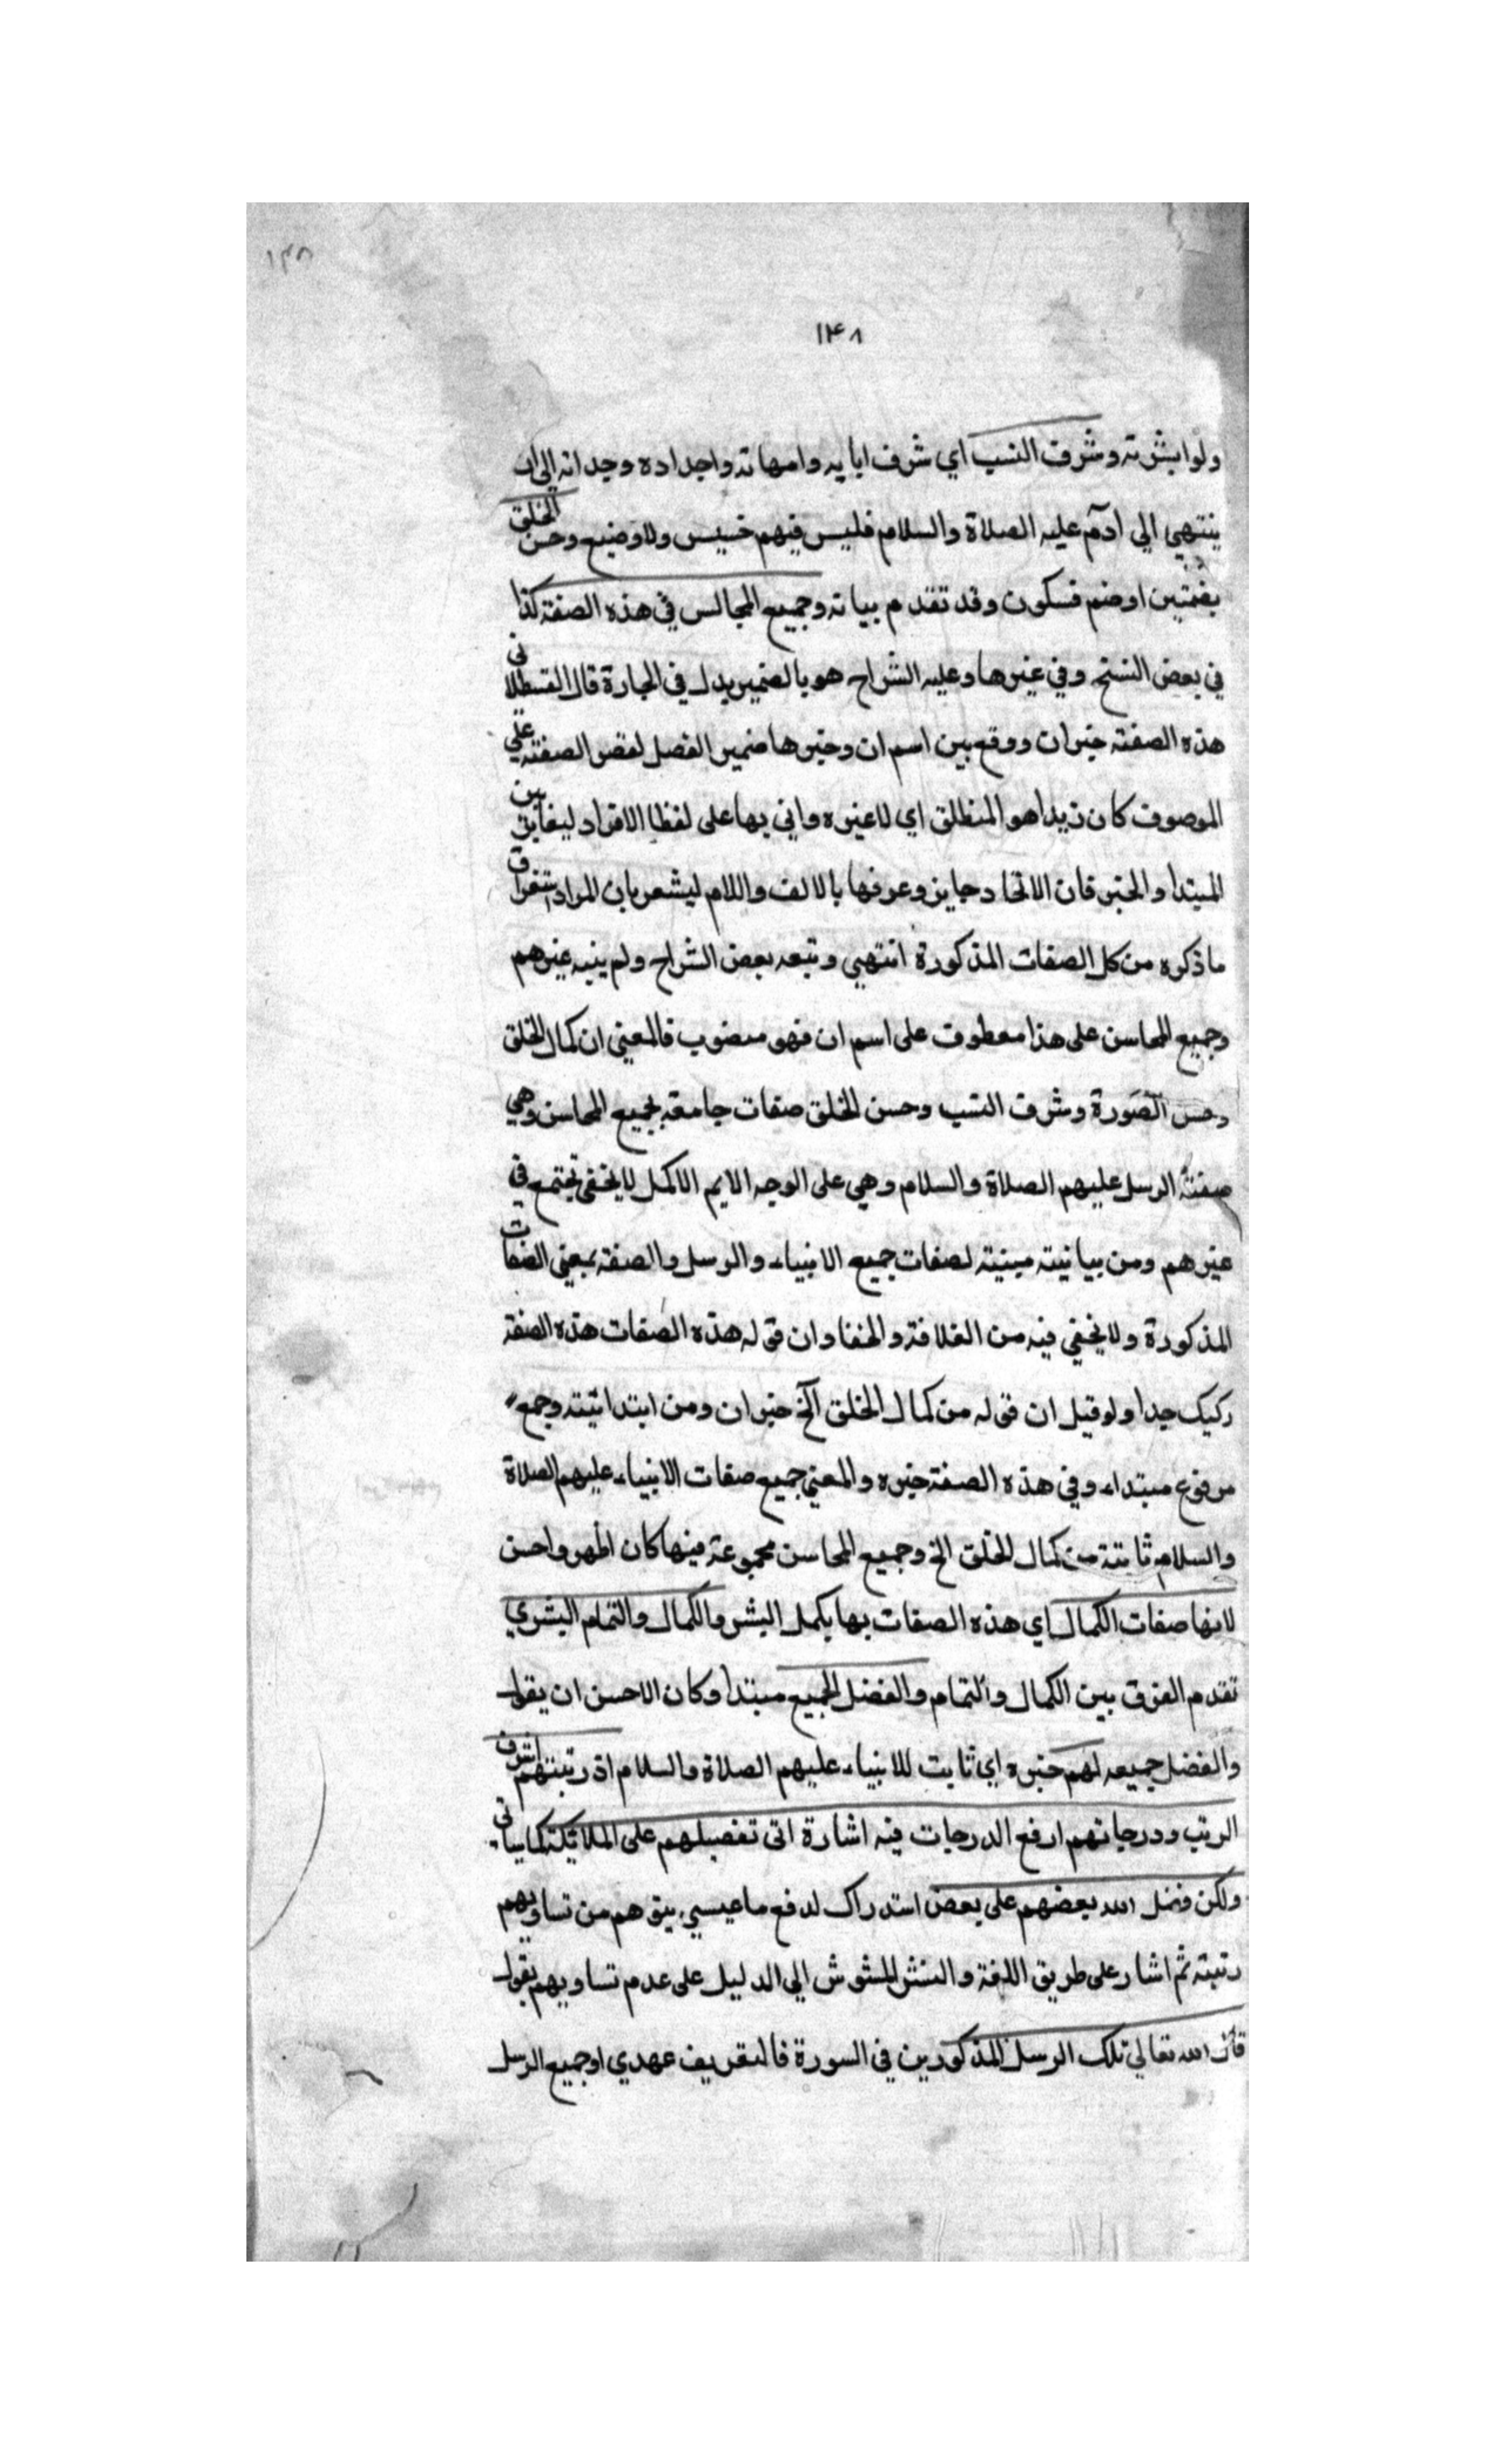 ١٣٨
١٣٨
ولوا بشرته وشرف النسب اي شرف ابايه وامهاته واجداده وجداته الى ان
ينتهي الي ادم عليه الصلاة والسلام فليس فيهم خسيس ولا وضيع وحسن الخلق
بضمتين اوضم فسكون وقد تقدم بيانه وجميع المجالس في هذه الصفة كذا
في بعض النسخ وفي غيرها وعليه الشراح هو بالضمير بدل في الجارة قال القسطلاني
هذه الصفته خبران ووقع بين اسم ان وخبرها ضمير الفصل لقصر الصفته علي
الموصوف كان زيدا هو المنطلق اي لا غيره واتي بها على لفظ الافراد ليفايق بين
المبتدا والخبر فان الاتحاد جايز وعرفها بالالف واللام ليشعر بان المراد استغراق
ما ذكره من كل الصفات المذكورة انتهي وتبعه بعض الشراح ولم ينبه غيرهم
وجميع المحاسن على هذا معطوف على اسم ان فهو منصوب فالمعني ان كمال الخلق
وحسن الصورة وشرف النسب وحسن الخلق صفات جامعة لجميع المحاسن وهي
صفته الرسل عليهم الصلاة والسلام وهي على الوجه الايم الاكمل لا يخفى تجتمع في
غيرهم ومن بيانيته مبنيته لصفات جميع الانبياء والرسل والصفة بمعني الصفات
المذكورة ولا يخفي فيه من الغلافة والخفا وان قوله هذه الصفات هذه الصفة
ركيك جدا ولو قيل ان قوله من كمال الخلق الخ خبران ومن ابتدائيته وجمع
مرفوع مبتداء وفي هذه الصفة خبره والمعني جميع صفات الانبياء عليهم الصلاة
والسلام ثابتة من كمال الخلق الخ وجميع المحاسن مجموعة فيها كان اظهر واحسن
لانها صفات الكمال اي هذه الصفات بها يكمل البشر والكمال والتمام البشري
تقدم الفرق بين الكمال والتمام والفضل الجميع مبتدا وكان الاحسن ان يقول
والفضل جميعه لهم خبره اي ثابت للانبياء عليهم الصلاة والسلام اذ رتبتهم اشرف
الرتب ودرجاتهم ارفع الدرجات فيه اشارة اتى تفضيلهم على الملائيكته كما سياتي
ولكن فضل الله بعضهم على بعض استدراك لدفع ما عيسي يتوهم من تساويهم
رتبته ثم اشار على طريق اللفة والنشر المشوش الي الدليل على عدم تساويهم بقول
قال الله تعالي تلك الرسل المذكورين في السورة فالتعريف عهدي او جميع الرسل